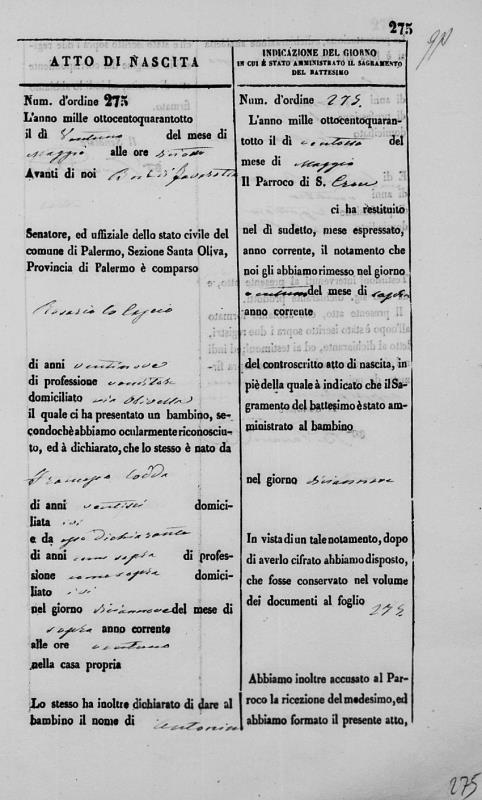 275
ATTO DI NASCITA
Num. d'ordine 275
L'anno mille ottocentoquarantotto
il dì ventuno del mese di
Maggio alle ore
Avanti di noi
Senatore, ed uffiziale dello stato civile del
comune di Palermo, Sezione Santa Oliva,
Provincia di Palermo è comparso
Rosario Lo
di anni ventinove
di professione venditore
domiciliato via Olivella
il quale ci ha presentato un bambino, se-
condochè abbiamo ocularmente riconosciu-
to, ed à dichiarato, che lo stesso è nato da
Francesca
di anni ventisei domici-
liata ivi
e da esso dichiarante
di anni come sopra di profes-
sione come sopra domici-
liato ivi
nel giorno diciannove del mese di
sopra anno corrente
alle ore ventuno
nella casa propria
Lo stesso ha inoltre dichiarato di dare al
bambino il nome di Antonino
INDICAZIONE DEL GIORNO
IN CUI È STATO AMMINISTRATO IL SAGRAMENTO
DEL BATTESIMO
Num. d'ordine 275.
L'anno mille ottocentoquaran-
totto il dì ventotto del
mese di Maggio
Il Parroco di S. Croce
ci ha restituito
nel dì sudetto, mese espressato,
anno corrente, il notamento che
noi gli abbiamo rimesso nel giorno
ventuno del mese di sopra
anno corrente
del controscritto atto di nascita, in
piè della quale à indicato che il Sa-
gramento del battesimo è stato am-
ministrato al bambino
nel giorno diciannove
In vista di un tale notamento, dopo
di averlo cifrato abbiamo disposto,
che fosse conservato nel volume
dei documenti al foglio
275
Abbiamo inoltre accusato al Par-
roco la ricezione del medesimo, ed
abbiamo formato il presente atto,
275